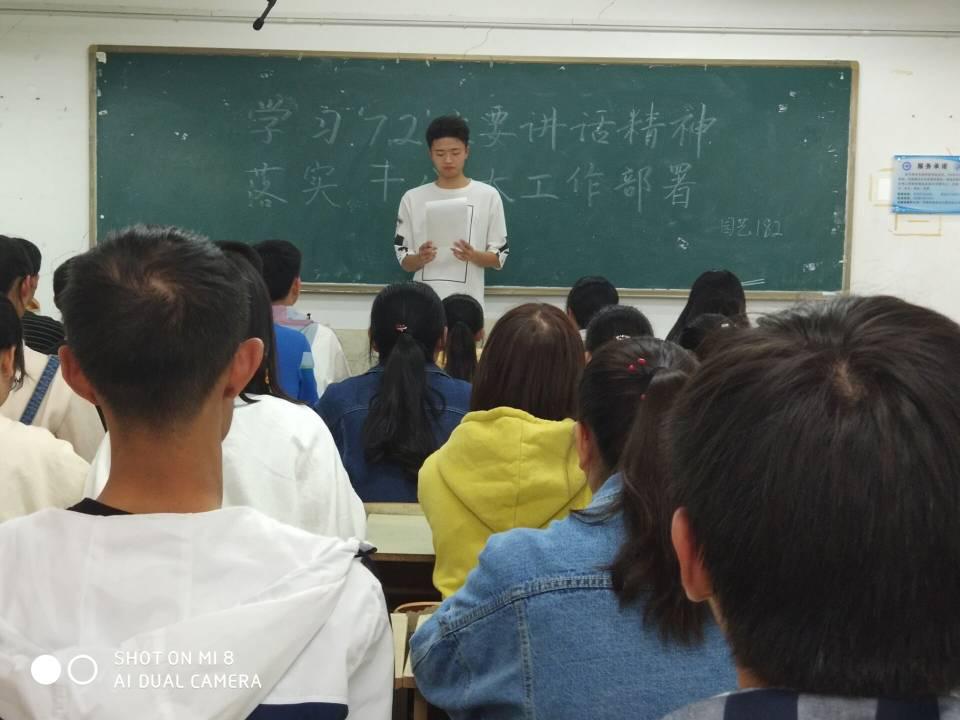 学习"7.2"重要讲话精神
落实十八大工作部署
园艺182
服务承诺
SHOT ON MI 8
AI DUAL CAMERA